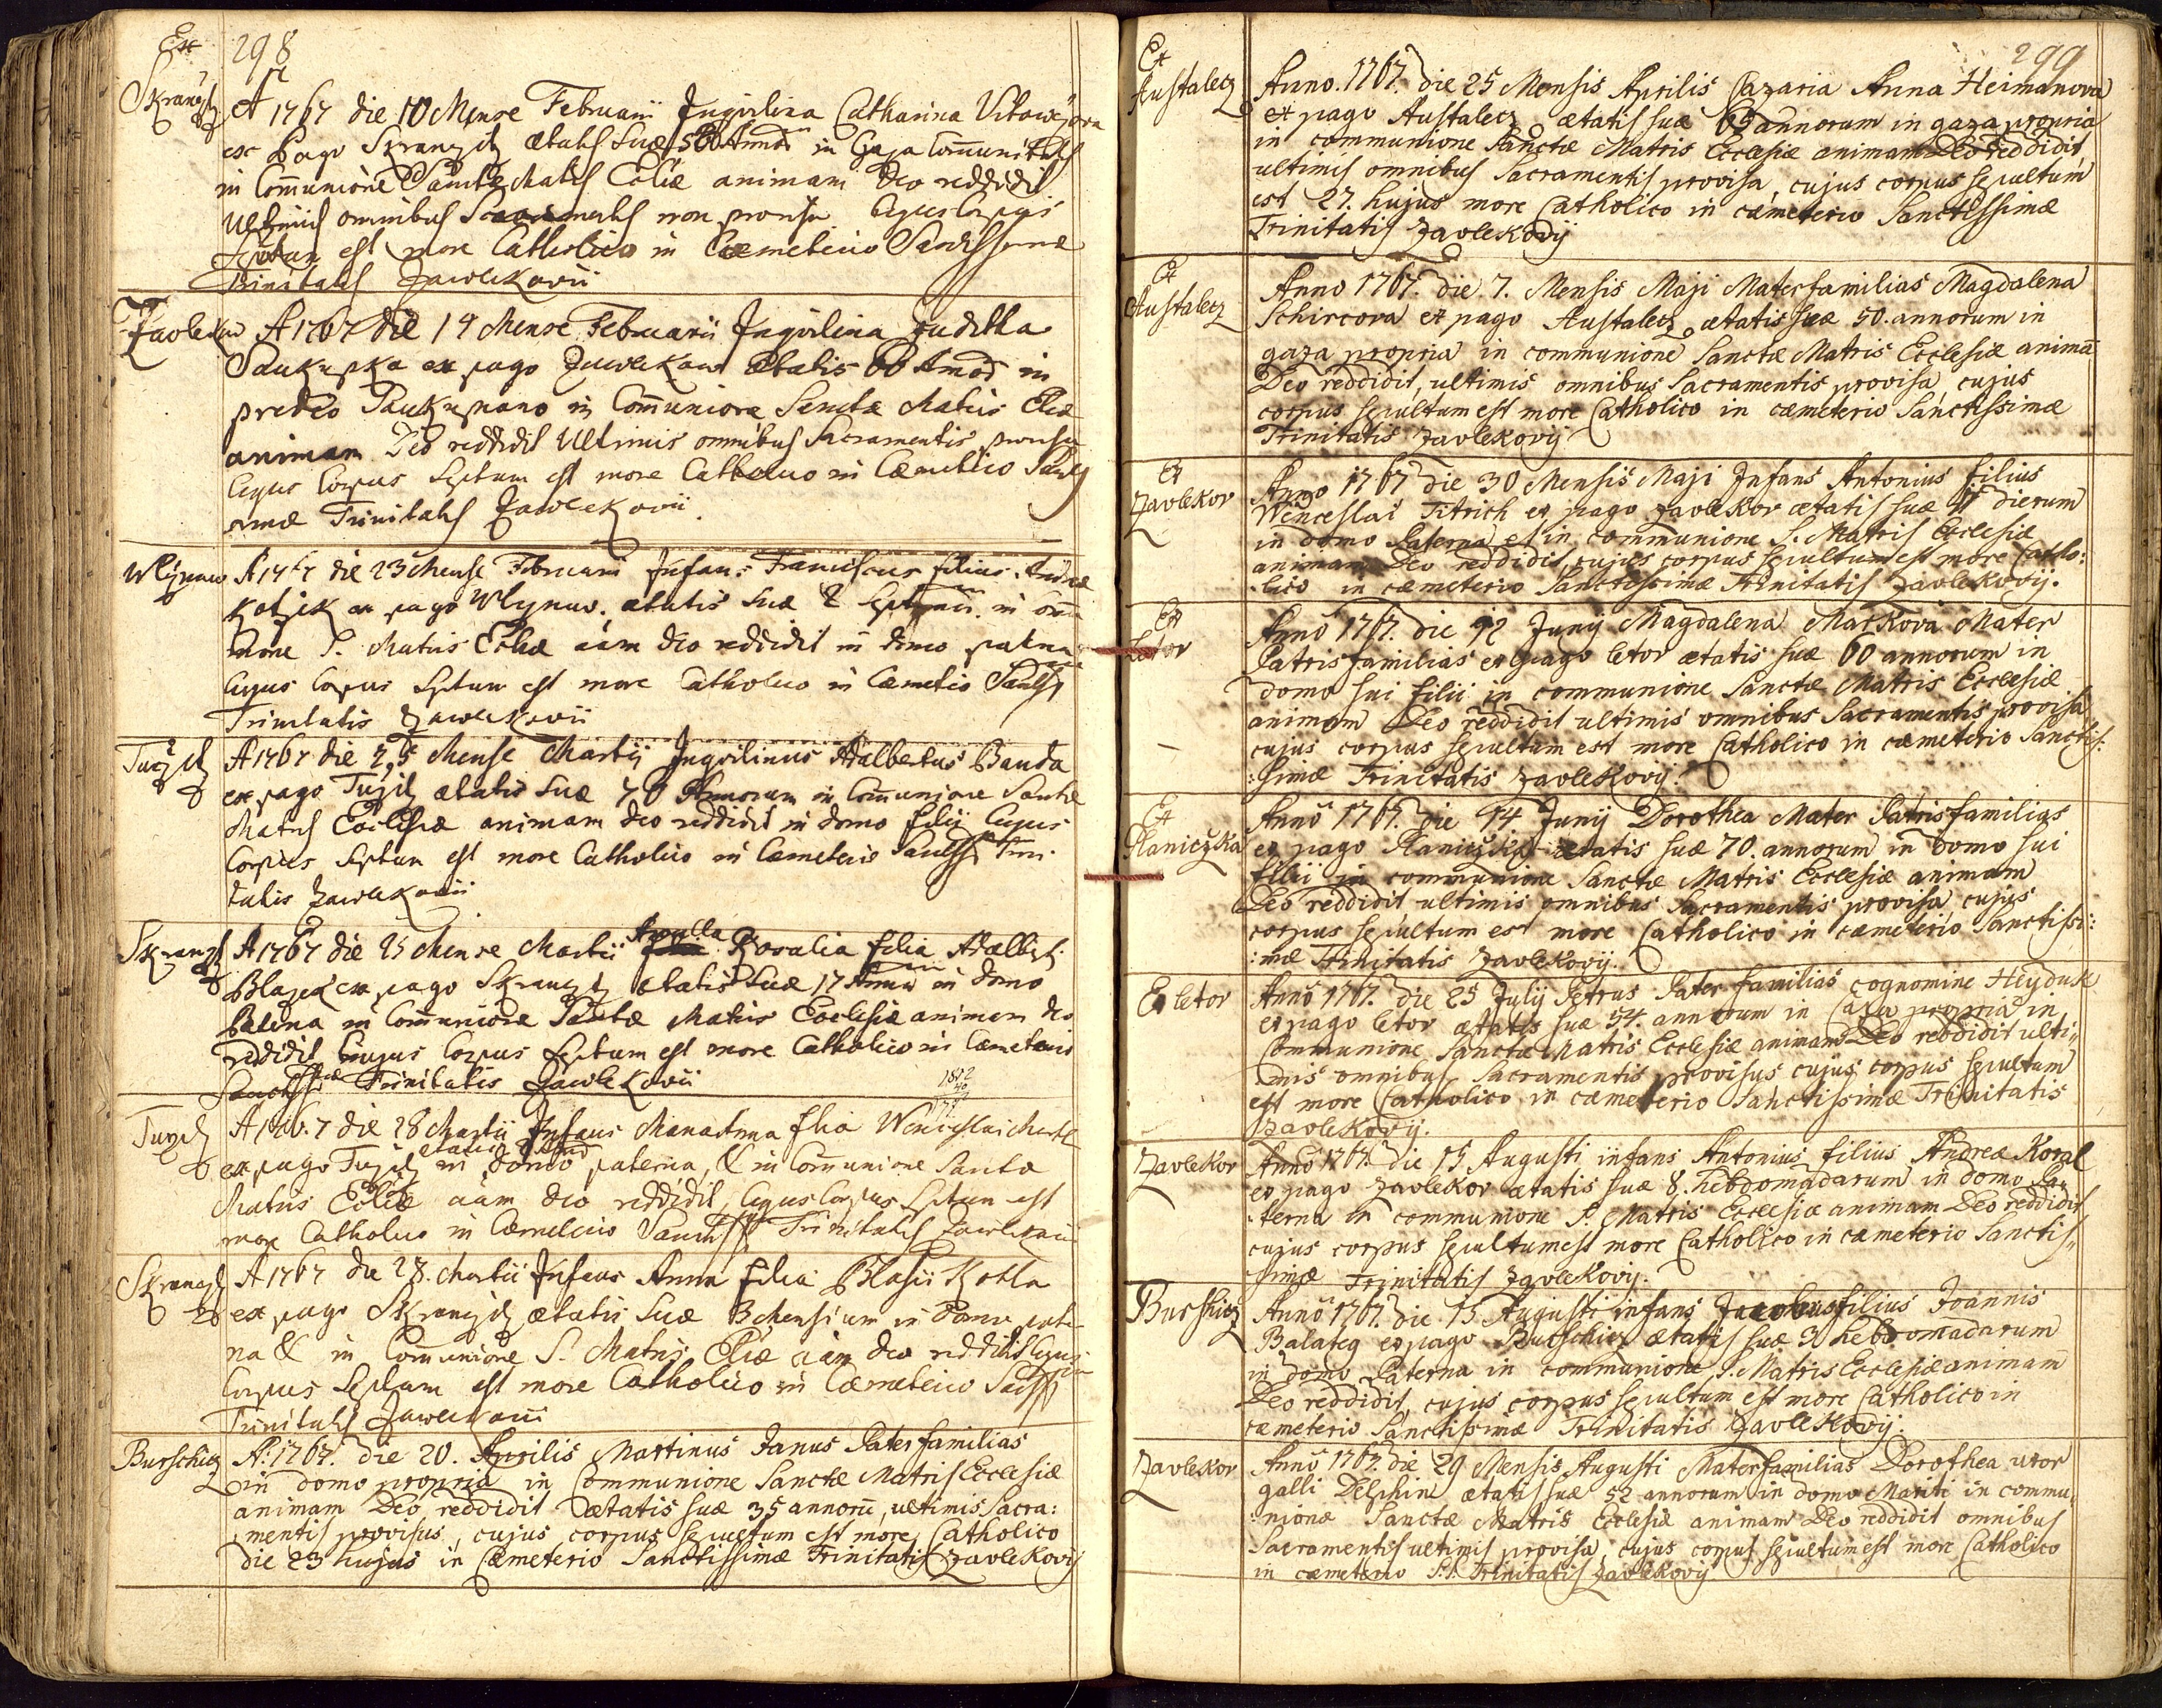 Ex
298
Skranczitz
A 1767 die 10 Mense Februarii Inquilina Catharina
ex Pago Skranczitz ætatis Suæ 58 Annor in Communitatis
in Com̅unione Sanctæ Matris Ecclie animam Deo reddidit
Ultimis omnibus Sacramentis non provisa Cujus Corpus
Septum est more Catholico in Cæmeterio Sanctissimæ
Trinitatis Zawlekovii
Zavlekow
A 1767 die 14 Mense Februarii Inquilina Juditha
ex pago Zawlekow Ætatis 66 Annor in
in Com̅unione Sanctæ Matris Ecliæ
animam Deo reddidit Ultimis omnibus Sacramentis provisa
Cujus Corpus Septum est more Catholico in Cæmeterio Sanctiss
imæ Trinitatis Zawlekovii
Wlynow
A 1767 die 23 Mense Februarii Infans Franciscus filius Andreæ
Kotzik ex pago Wlynow. ætatis Suæ 2 Septiman. in Com̅u
nione S. Matris Ecliæ aiam Deo reddidit in domo paterna
Cujus Corpus Septum est more Catholico in Cæmeterio Sanctiss
Trinitatis Zawlekovii
Tuzitz
A 1767 die 25 Mense Martii Inquilinus Adalbertus Banda
ex pago Tuzitz ætatis Suæ 70 Annorum in Com̅unione Sanctæ
Matris Ecclesiæ animam Deo reddidit in domo filii Cujus
Corpus Septum est more Catholico in Cæmeterio Sanctiss Trini-
tatis Zawlekovii
Skranczitz
A 1767 die 25 Mense Martii Rosalia filia Adalberti
Blazek ex pago Skranczitz ætatis Suæ 17 Annor in domo
Paterna in Com̅unione Sanctæ Matris Ecclesiæ animam Deo
reddidit Cujus Corpus Septum est more Catholico in Cæmeterio
Sanctissimæ Trinitatis Zawlekovii
Tuzitz
A 1767 die 28 Martii Infans Maria Anna filia Wenceslai
ex pago Tuzitz ætatis in domo paterna, & in Com̅unione Sanctæ
Matris Ecliæ aiam Deo reddidit, Cujus Corpus Septum est
more Catholico in Cæmeterio Sanctiss Trinitatis Zawlekovii
Skranczitz
A 1767 die 28. Martii Infans Anna filia Blasii Kotla
ex pago Skranczitz ætatis Suæ 3 Mensium in Domo pater
na & in Com̅unione S. Matris Ecliæ aiam Deo reddidit Cujus
Corpus Septum est more Catholico in Cæmeterio Sanctiss
Trinitatis Zawlekovii
Burschicz
A: 1767. die 20. Aprilis Martinus Janus Paterfamilias
in domo propria in Communione Sanctæ Matris Ecclesiæ
animam Deo reddidit ætatis suæ 35 annoru̅, ultimis Sacra:
mentis provisus, cujus corpus sepultum est more Catholico
die 23 hujus in Cæmeterio Sanctissimæ Trinitatis Zavlekovij
299
Ex
Austalecz
Anno. 1767. die 25 Mensis Aprilis Cazaria Anna Heimanova
ex pago Austalecz ætatis suæ 65 annorum in gaza propria
in communione Sanctæ Matris Ecclesiæ animam Deo reddidit
ultimis omnibus Sacramentis provisa, cujus corpus sepultum
est 27. hujus more Catholico in cæmeterio Sanctissimæ
Trinitatis Zavlekovij
Ex
Austalecz
Anno 1767. die 7. Mensis Maji Materfamilias Magdalena
Schircova ex pago Austalecz ætatis suæ 50. annorum in
gaza propria in communione Sanctæ Matris Ecclesiæ anima̅
Deo reddidit, ultimis omnibus Sacramentis provisa, cujus
corpus sepultum est more Catholico in cæmeterio Sanctissimæ
Trinitatis Zavlekovij
Ex
Zavlekov
Anno 1767 die 30 Mensis Maji Infans Antonius filius
Wenceslai Titrich ex pago Zavlekov ætatis suæ 11 dierum
in domo Paterna et in communione S. Matris Ecclesiæ
animam Deo reddidit, cujus corpus sepultum est more Catho:
:lico in cæmeterio Sanctissimæ Trinitatis Zavlekovij.
Ex
Letov
Anno 1767. die 12 Junij Magdalena Markova Mater
Patrisfamilias ex pago letov ætatis suæ 60 annorum in
domo sui filii in communione Sanctæ Matris Ecclesiæ
animam Deo reddidit ultimis omnibus Sacramentis provisa
cujus corpus sepultum est more Catholico in cæmeterio Sanctis:
:simæ Trinitatis Zavlekovij.
Ex
Planiczka
Anno 1767. die 14 Junij Dorothea Mater Patrisfamilias
ex pago Planiczka ætatis suæ 70. annorum in domo sui
filii in communione Sanctæ Matris Ecclesiæ animam
Deo reddidit ultimis omnibus Sacramentis provisa cujus
corpus sepultum est more Catholico in cæmeterio Sanctissi:
:mæ Trinitatis Zavlekovij.
Ex letov
Anno 1767. die 25 Julij Petrus Paterfamilias cognomine Heyduk
ex pago letov ætatis suæ 54. annorum in Casa propria in
Communione Sanctæ Matris Ecclesiæ animam Deo reddidit ulti:
mis omnibus Sacramentis provisus cujus corpus sepultum
est more Catholico in cæmeterio Sanctissimæ Trinitatis
Zavlekovij.
Zavlekov
Anno 1767. die 15 Augusti infans Antonius filius Andreæ Koral
ex pago Zavlekov ætatis suæ 8. hebdomadarum in domo Pa:
terna in communione S. Matris Ecclesiæ animam Deo reddidit
cujus corpus sepultum est more Catholico in cæmeterio Sanctis:
simæ Trinitatis Zavlekovij.
Burshicz
Anno 1767. die 15 Augusti infans Jacobus filius Joannis
Balateg ex pago Burschicz ætatis suæ 3 hebdomadarum
in domo Paterna in communione S. Matris Ecclesiæ animam
Deo reddidit, cujus corpus sepultum est more Catholico in
cæmeterio Sanctissimæ Trinitatis Zavlekovij.
Zavlekov
Anno 1767. die 29 Mensis Augusti Materfamilias Dorothea uxor
galli Delphin ætatis suæ 52 annorum in domo Mariti in commu:
:nione Sanctæ Matris Ecclesiæ animam Deo reddidit omnibus
Sacramentis ultimis provisa, cujus corpus sepultum est more Catholico
in cæmeterio S.S. Trinitatis Zavlekovij